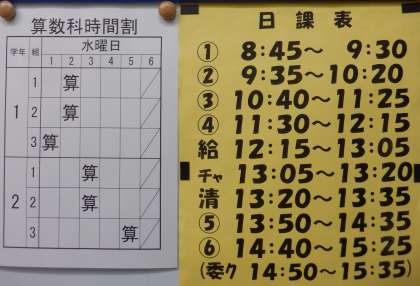 算数科時間割
学年 組 水曜日
1 2 3 4 5 6
1
1 算
2 算
3 算
2
1 算
2 算
3 算
日課表
① 8:45～ 9:30
② 9:35～10:20
③ 10:40～11:25
④ 11:30～12:15
給 12:15～13:05
チャ 13:05～13:20
清 13:20～13:35
⑤ 13:50～14:35
⑥ 14:40～15:25
(委ク 14:50～15:35)